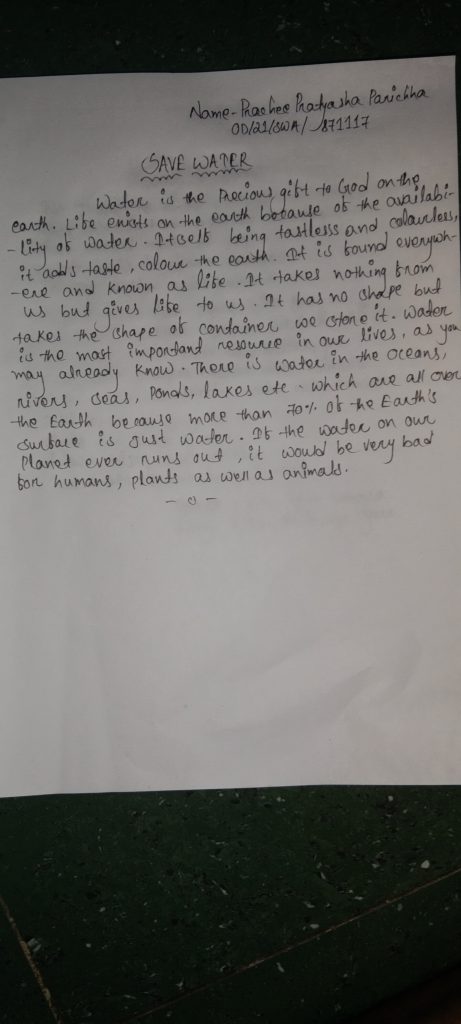 Name- Prachee Pratyasha Parichha
OD/21/SWA/ 871117
SAVE WATER
Water is the Precious gift to God on the
earth. Life exists on the earth because of the availabi-
-lity of water. Itself being tastlesss and colourless,
it adds taste, colour the earth. It is found everywh-
-ere and known as life. It takes nothing from
us but gives life to us. It has no shape but
takes the shape of container we store it. Water
is the most important resource in our lives, as you
may already know. There is water in the oceans,
rivers, seas, Ponds, lakes etc. which are all over
the Earth because more than 70% of the Earth's
surface is Just water. If the water on our
Planet ever runs out, it would be very bad
for humans, plants as well as animals.
- 0 -